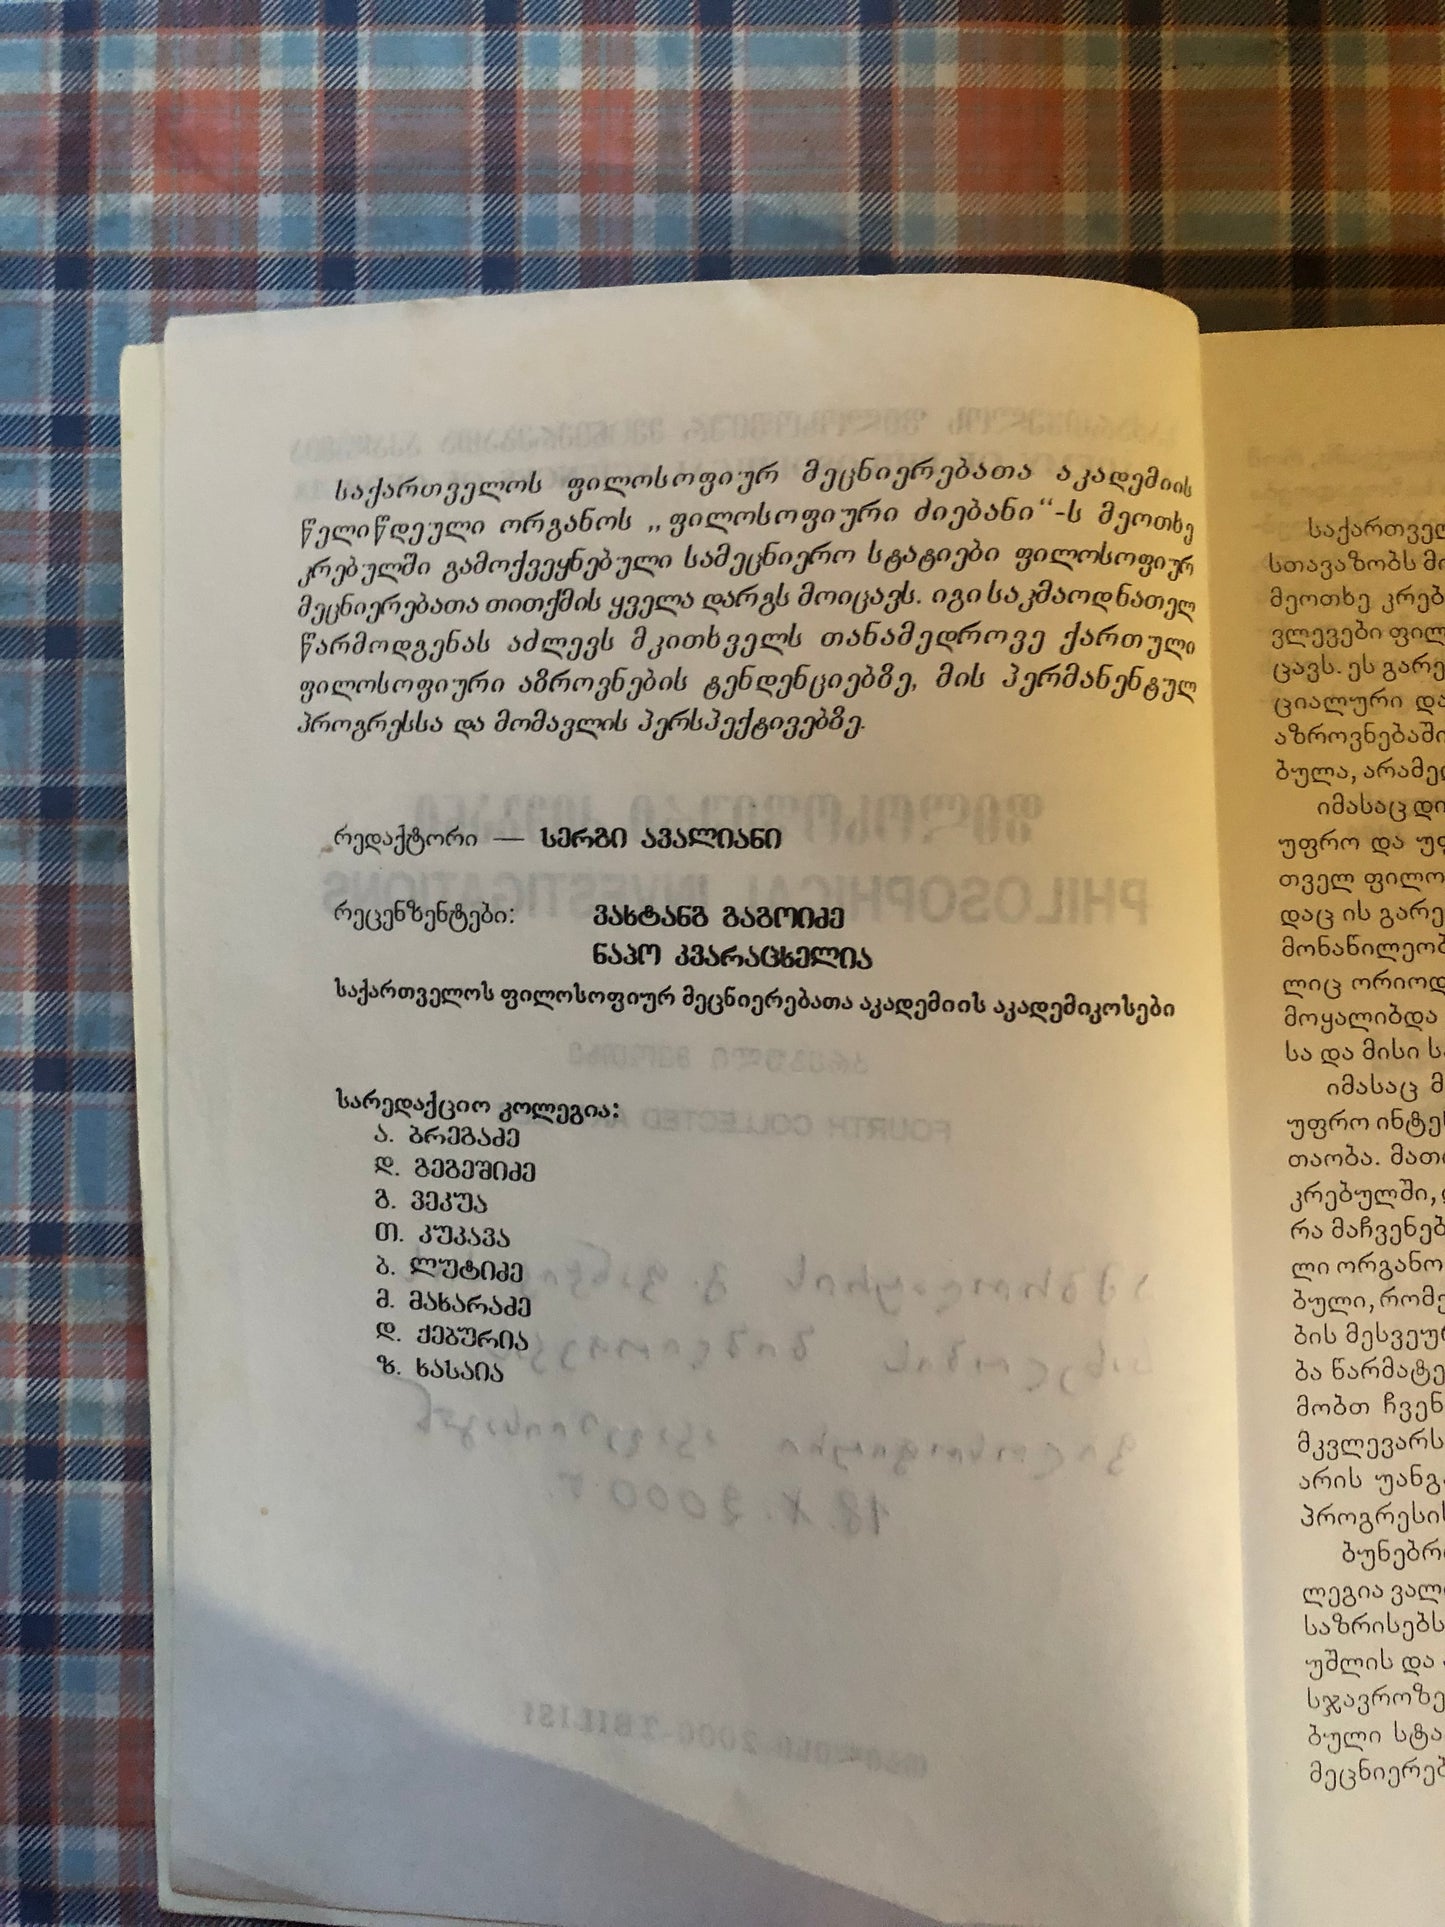 საქართველოს ფილოსოფიურ მეცნიერებათა აკადემიის
წელიწდეული ორგანოს „ფილოსოფიური ძიებანი“-ს მეოთხე
კრებულში გამოქვეყნებული სამეცნიერო სტატიები ფილოსოფიურ
მეცნიერებათა თითქმის ყველა დარგს მოიცავს. იგი საკმაოდ ნათელ
წარმოდგენას აძლევს მკითხველს თანამედროვე ქართული
ფილოსოფიური აზროვნების ტენდენციებზე, მის პერმანენტულ
პროგრესსა და მომავლის პერსპექტივებზე.
რედაქტორი — სერგი ავალიანი
რეცენზენტები: ვახტანგ გაგოიძე
ნაპო კვარაცხელია
საქართველოს ფილოსოფიურ მეცნიერებათა აკადემიის აკადემიკოსები
სარედაქციო კოლეგია:
ა. ბრეგაძე
დ. გეგეშიძე
გ. ვეკუა
თ. კუკავა
ბ. ლუტიძე
მ. მახარაძე
დ. ქებურია
ზ. ხასაია
საქართველ
სთავაზობს
მეოთხე კრებ
ვლევები ფილ
ცავს. ეს გარე
ციალური და
აზროვნებაში
ბულა, არამე
იმასაც
უფრო და
თველ ფილო
დაც ის გარე
მონაწილეობ
ლიც ორიოდ
მოყალიბდა
სა და მისი
იმასაც
უფრო ინტე
თაობა. მათ
კრებულში,
რა მაჩვენებ
ლი ორგანო
ბული, რომე
ბის მესვეურ
ბა წარმატე
მობთ ჩვენ
მკვლევარს
არის უანგ
პროგრესის
ბუნებრ
ლეგია ვალ
საზრისებს
უშლის და
სჯავროზე
ბული სტა
მეცნიერებ